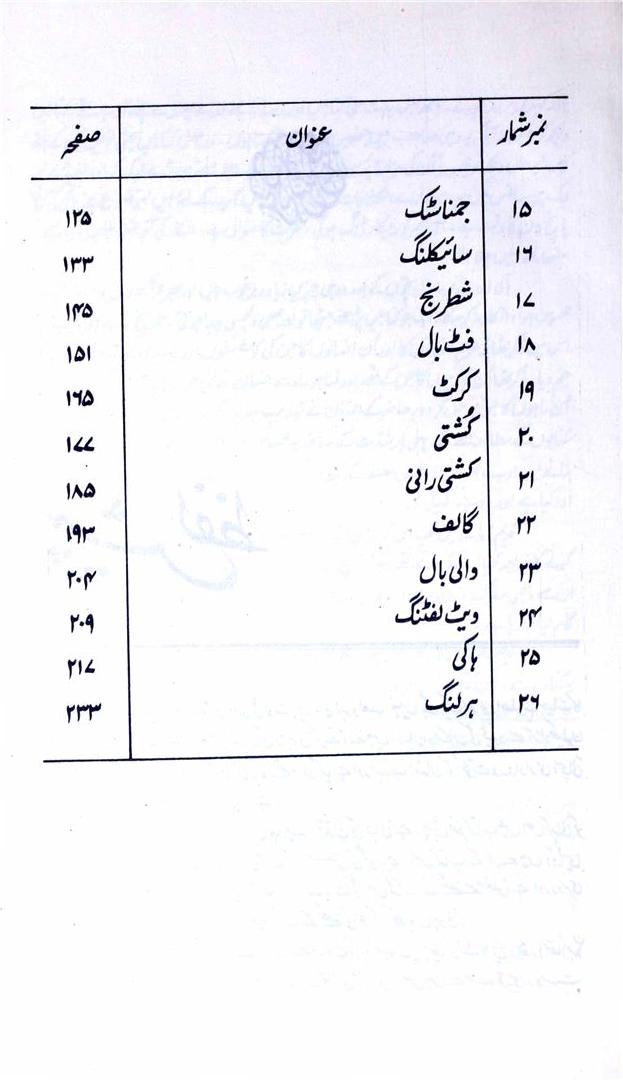 نمبر شمار عنوان صفحہ
۱۵ جمناسٹک ۱۲۵
۱۶ سائیکلنگ ۱۳۳
۱۷ شطرنج ۱۴۵
۱۸ فٹ بال ۱۵۱
۱۹ کرکٹ ۱۶۵
۲۰ کُشتی ۱۷۷
۲۱ کشتی رانی ۱۸۵
۲۲ گالف ۱۹۳
۲۳ والی بال ۲۰۴
۲۴ ویٹ لفٹنگ ۲۰۹
۲۵ ہاکی ۲۱۷
۲۶ ہرلنگ ۲۳۳